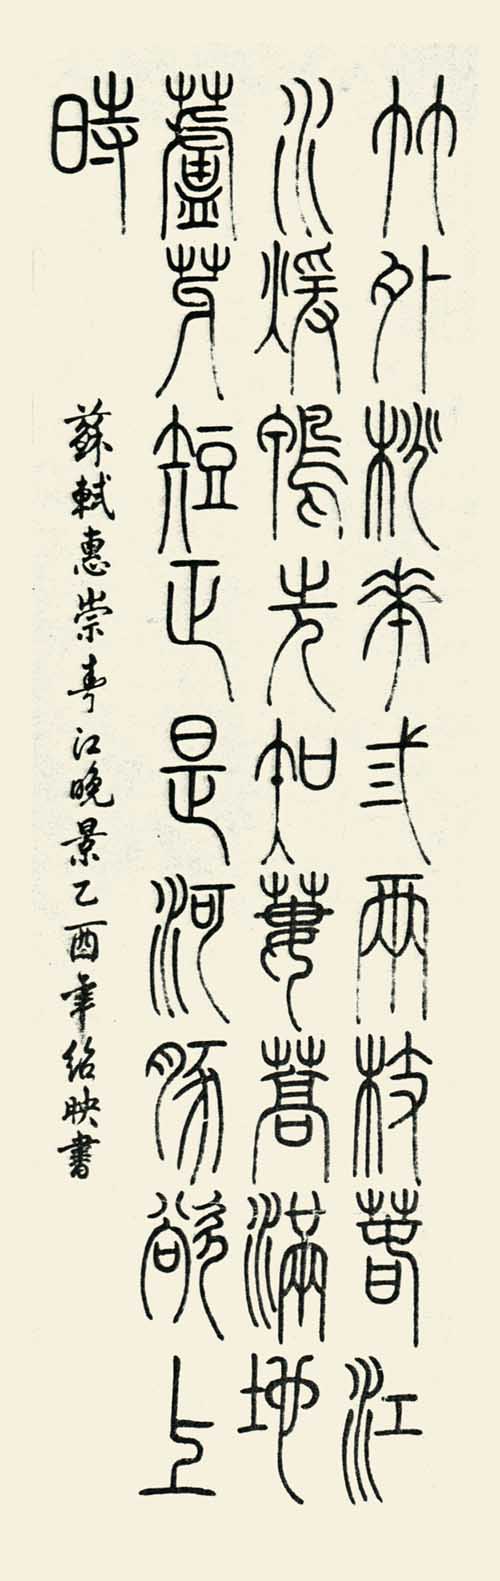 竹外桃花弎兩枝萅江
水煖鴨先知蔞蒿滿地
蘆芽短正是河豚欲上
時
蘇軾惠崇春江晚景乙酉年紹映書